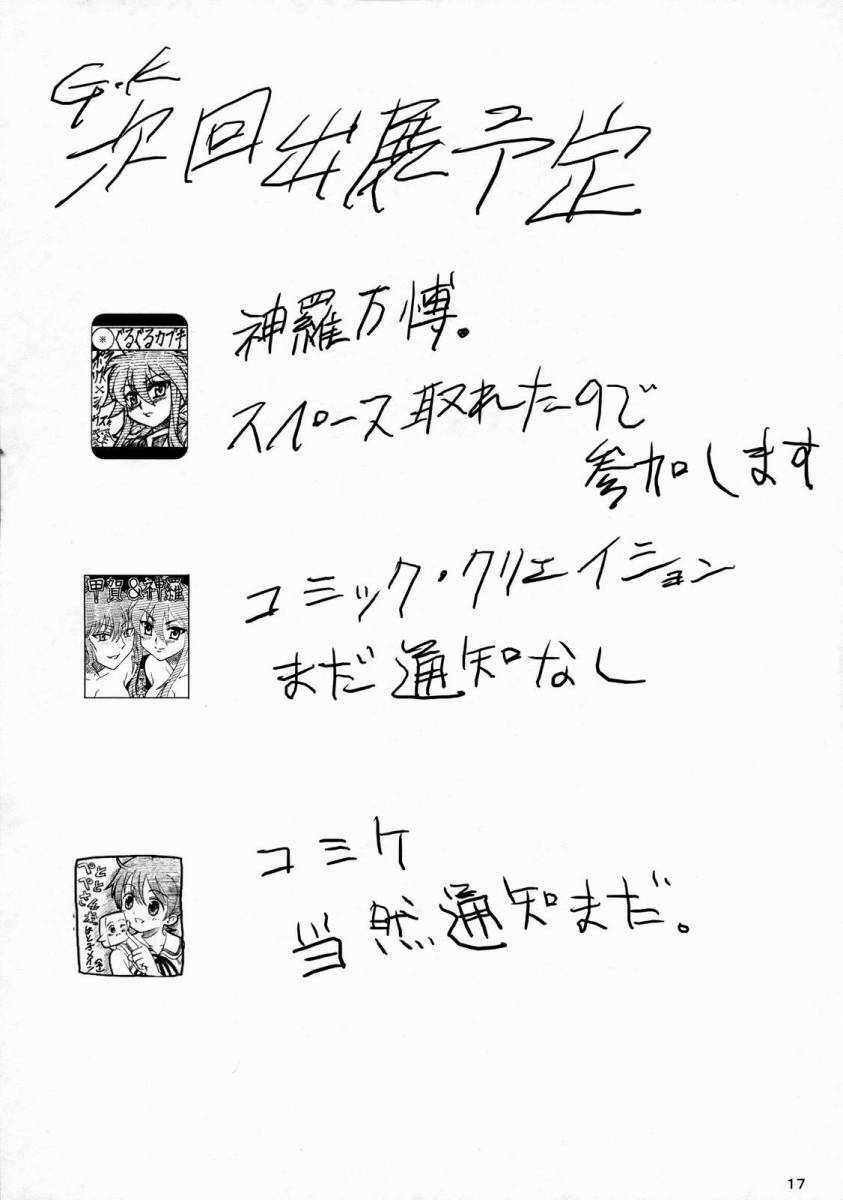 G.K
次回出展予定
※ ぐるぐるカブキ
神羅万博。
スペース取れたので
参加します
甲賀&神羅
コミック・クリエイション
まだ通知なし
コミケ
当然通知まだ。
17